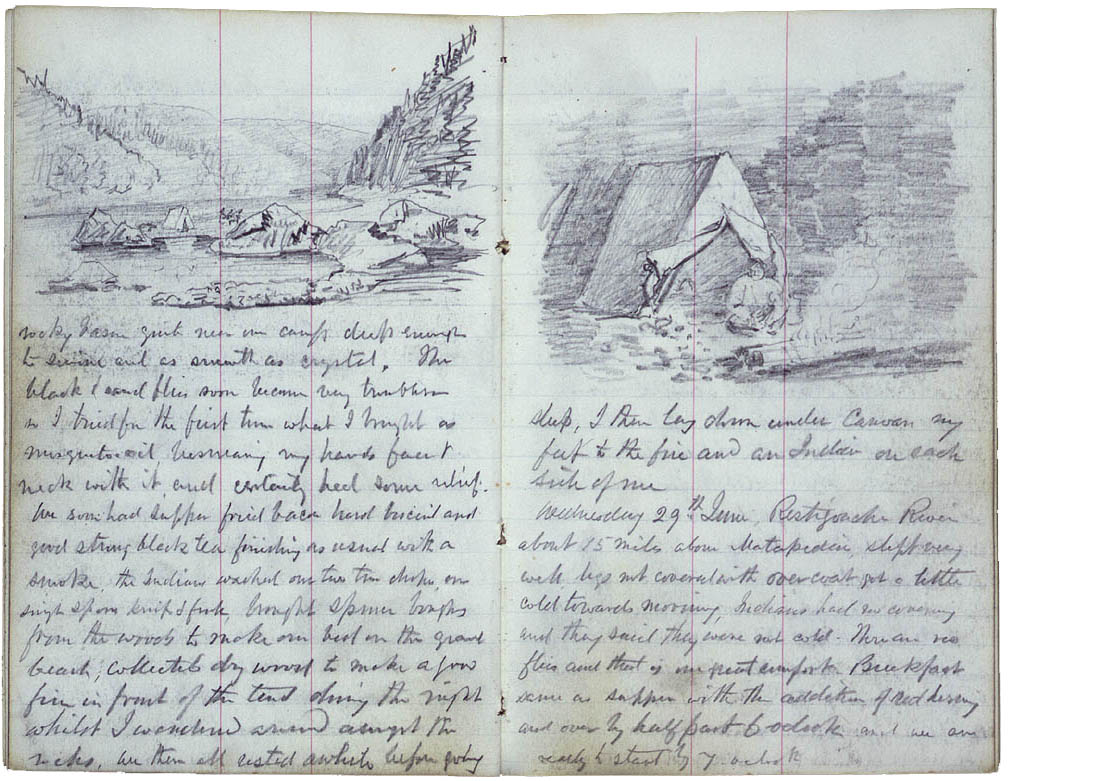 rocky basin quite near our camp deep enough
to swim and as smooth as crystal. The
black & sand flies soon became very troublesome
so I tried for the first time what I bought as
musquito oil besmearing my hands face &
neck with it and certainly had some relief.
We soon had supper fried bacon hard biscuit and
good strong black tea finishing as usual with a
smoke, the Indians washed our two tin
single spoon knife & fork, brought spruce boughs
from the woods to make our bed on the gravel
beach, collected dry wood to make a good
fire in front of the tent during the night
whilst I wandered around amongst the
rocks, we then all rested awhile before going
sleep, I then lay down under Canvas my
feet to the fire and an Indian on each
side of me
Wednesday 29th June, Restigouche River
about 15 miles above Matapedia, slept very
well legs not covered with overcoat got a little
cold towards morning, Indians had no covering
and they said they were not cold. There are no
flies and that is one great comfort. Breakfast
same as supper with the addition of red herring
and over by half past 6 oclock and we are
ready to start by 7 oclock